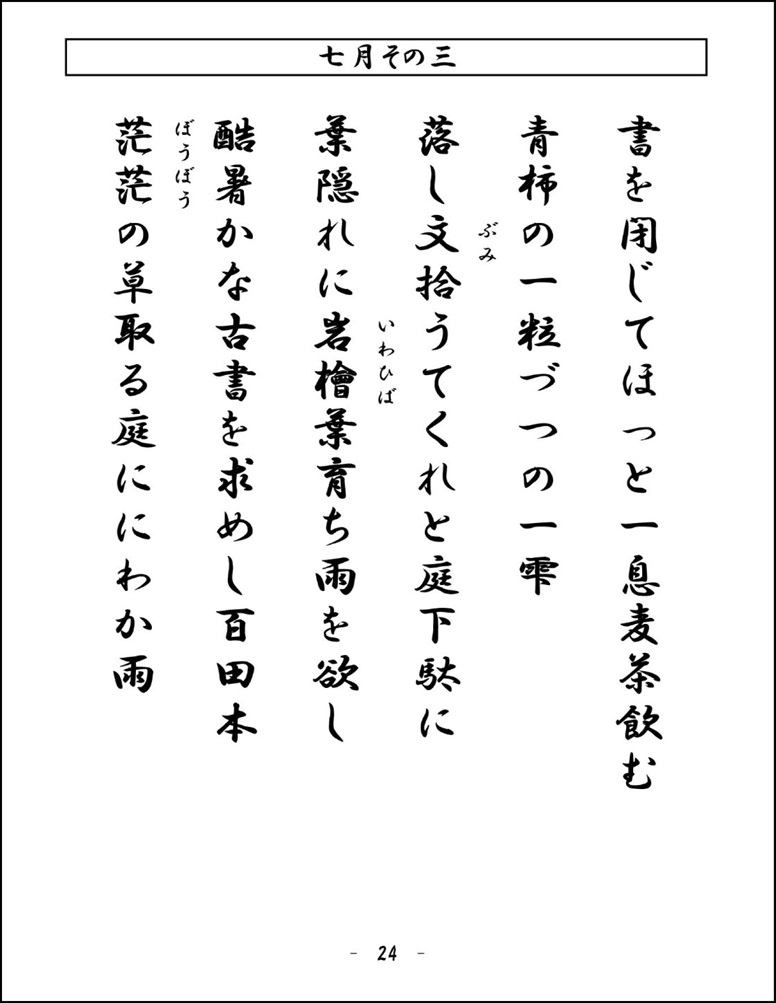 七月その三
書を閉じてほっと一息麦茶飲む
青柿の一粒づつの一雫
落し文拾うてくれと庭下駄に
ぶみ
葉隠れに岩檜葉育ち雨を欲し
いわひば
酷暑かな古書を求めし百田本
茫茫の草取る庭ににわか雨
ぼうぼう
- 24 -